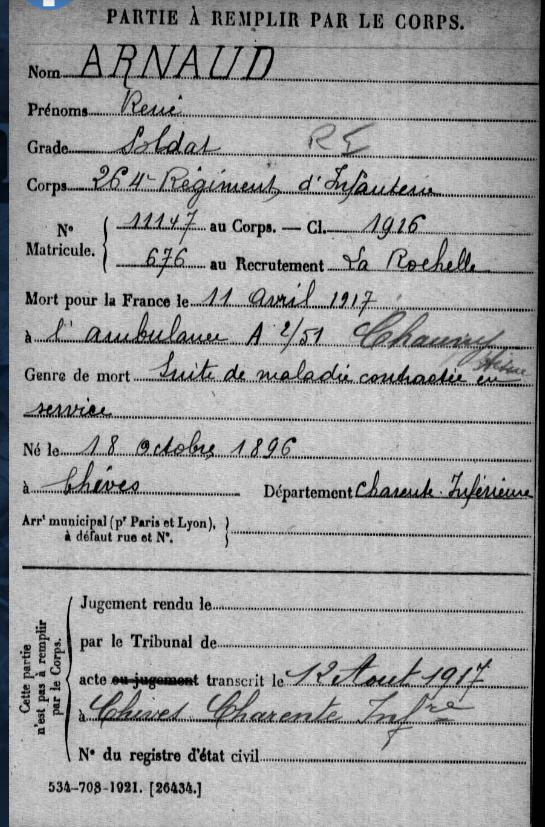 PARTIE À REMPLIR PAR LE CORPS.
Nom ARNAUD
Prénoms René
Grade Soldat RE
Corps 264e Régiment d'Infanterie
N° Matricule. 11147 au Corps. — Cl. 1916
676 au Recrutement La Rochelle
Mort pour la France le 11 avril 1917
à l'ambulance A 2/51 Chauny Aisne
Genre de mort Suite de maladie contractée en
service
Né le 18 octobre 1896
à Chives Département Charente-Inférieure
Arrt municipal (pr Paris et Lyon),
à défaut rue et N°.
Cette partie n'est pas à remplir par le Corps.
Jugement rendu le
par le Tribunal de
acte ou jugement transcrit le 12 Aout 1917
à Chives Charente Infre
N° du registre d'état civil
534-708-1921. [26434.]